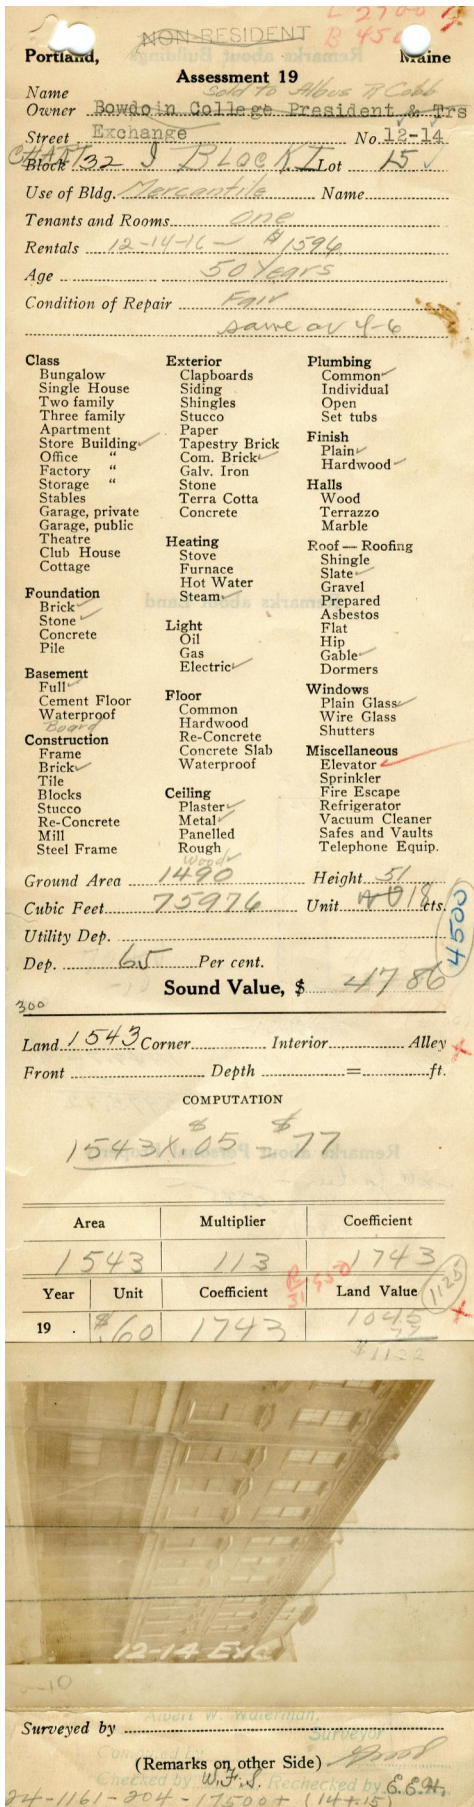 NON-RESIDENT
L 2700
B 450
Portland, Maine
Assessment 19
Name sold to Albus R Cobb
Owner Bowdoin College President & Trs
Street Exchange No. 12-14
CHART 32 J BLOCK I
Block Lot 15
Use of Bldg. Mercantile Name
Tenants and Rooms one
Rentals 12-14-16 - $1596
Age 50 Years
Condition of Repair Fair
same as 4-6
Class
Bungalow
Single House
Two family
Three family
Apartment
Store Building ✓
Office "
Factory "
Storage "
Stables
Garage, private
Garage, public
Theatre
Club House
Cottage
Foundation
Brick ✓
Stone ✓
Concrete
Pile
Basement
Full ✓
Cement Floor
Waterproof
Board
Construction
Frame
Brick ✓
Tile
Blocks
Stucco
Re-Concrete
Mill
Steel Frame
Exterior
Clapboards
Siding
Shingles
Stucco
Paper
Tapestry Brick
Com. Brick ✓
Galv. Iron
Stone
Terra Cotta
Concrete
Heating
Stove
Furnace
Hot Water
Steam ✓
Light
Oil
Gas
Electric ✓
Floor
Common
Hardwood
Re-Concrete
Concrete Slab
Waterproof
Ceiling
Plaster ✓
Metal ✓
Panelled
Rough
Wood ✓
Plumbing
Common ✓
Individual
Open
Set tubs
Finish
Plain ✓
Hardwood ✓
Halls
Wood
Terrazzo
Marble
Roof — Roofing
Shingle
Slate ✓
Gravel
Prepared
Asbestos
Flat
Hip
Gable ✓
Dormers
Windows
Plain Glass ✓
Wire Glass
Shutters
Miscellaneous
Elevator ✓
Sprinkler
Fire Escape
Refrigerator
Vacuum Cleaner
Safes and Vaults
Telephone Equip.
Ground Area 1490 Height 51
Cubic Feet 75976 Unit 18 cts.
4500
Utility Dep.
Dep. 65 Per cent.
Sound Value, $ 4786
300
Land 1543 Corner Interior Alley
Front Depth = ft.
COMPUTATION
1543 X $.05 - $77
Area Multiplier Coefficient
1543 113 1743
Year Unit Coefficient Land Value
1125
19 . $.60 1743 1045
77
$1122
12-14 EXC
Albert W. Waterman,
Surveyed by Surveyor
(Remarks on other Side)
Checked by W.F.S. Rechecked by E.E.H.
24-1161-204-17500+ (14+15)